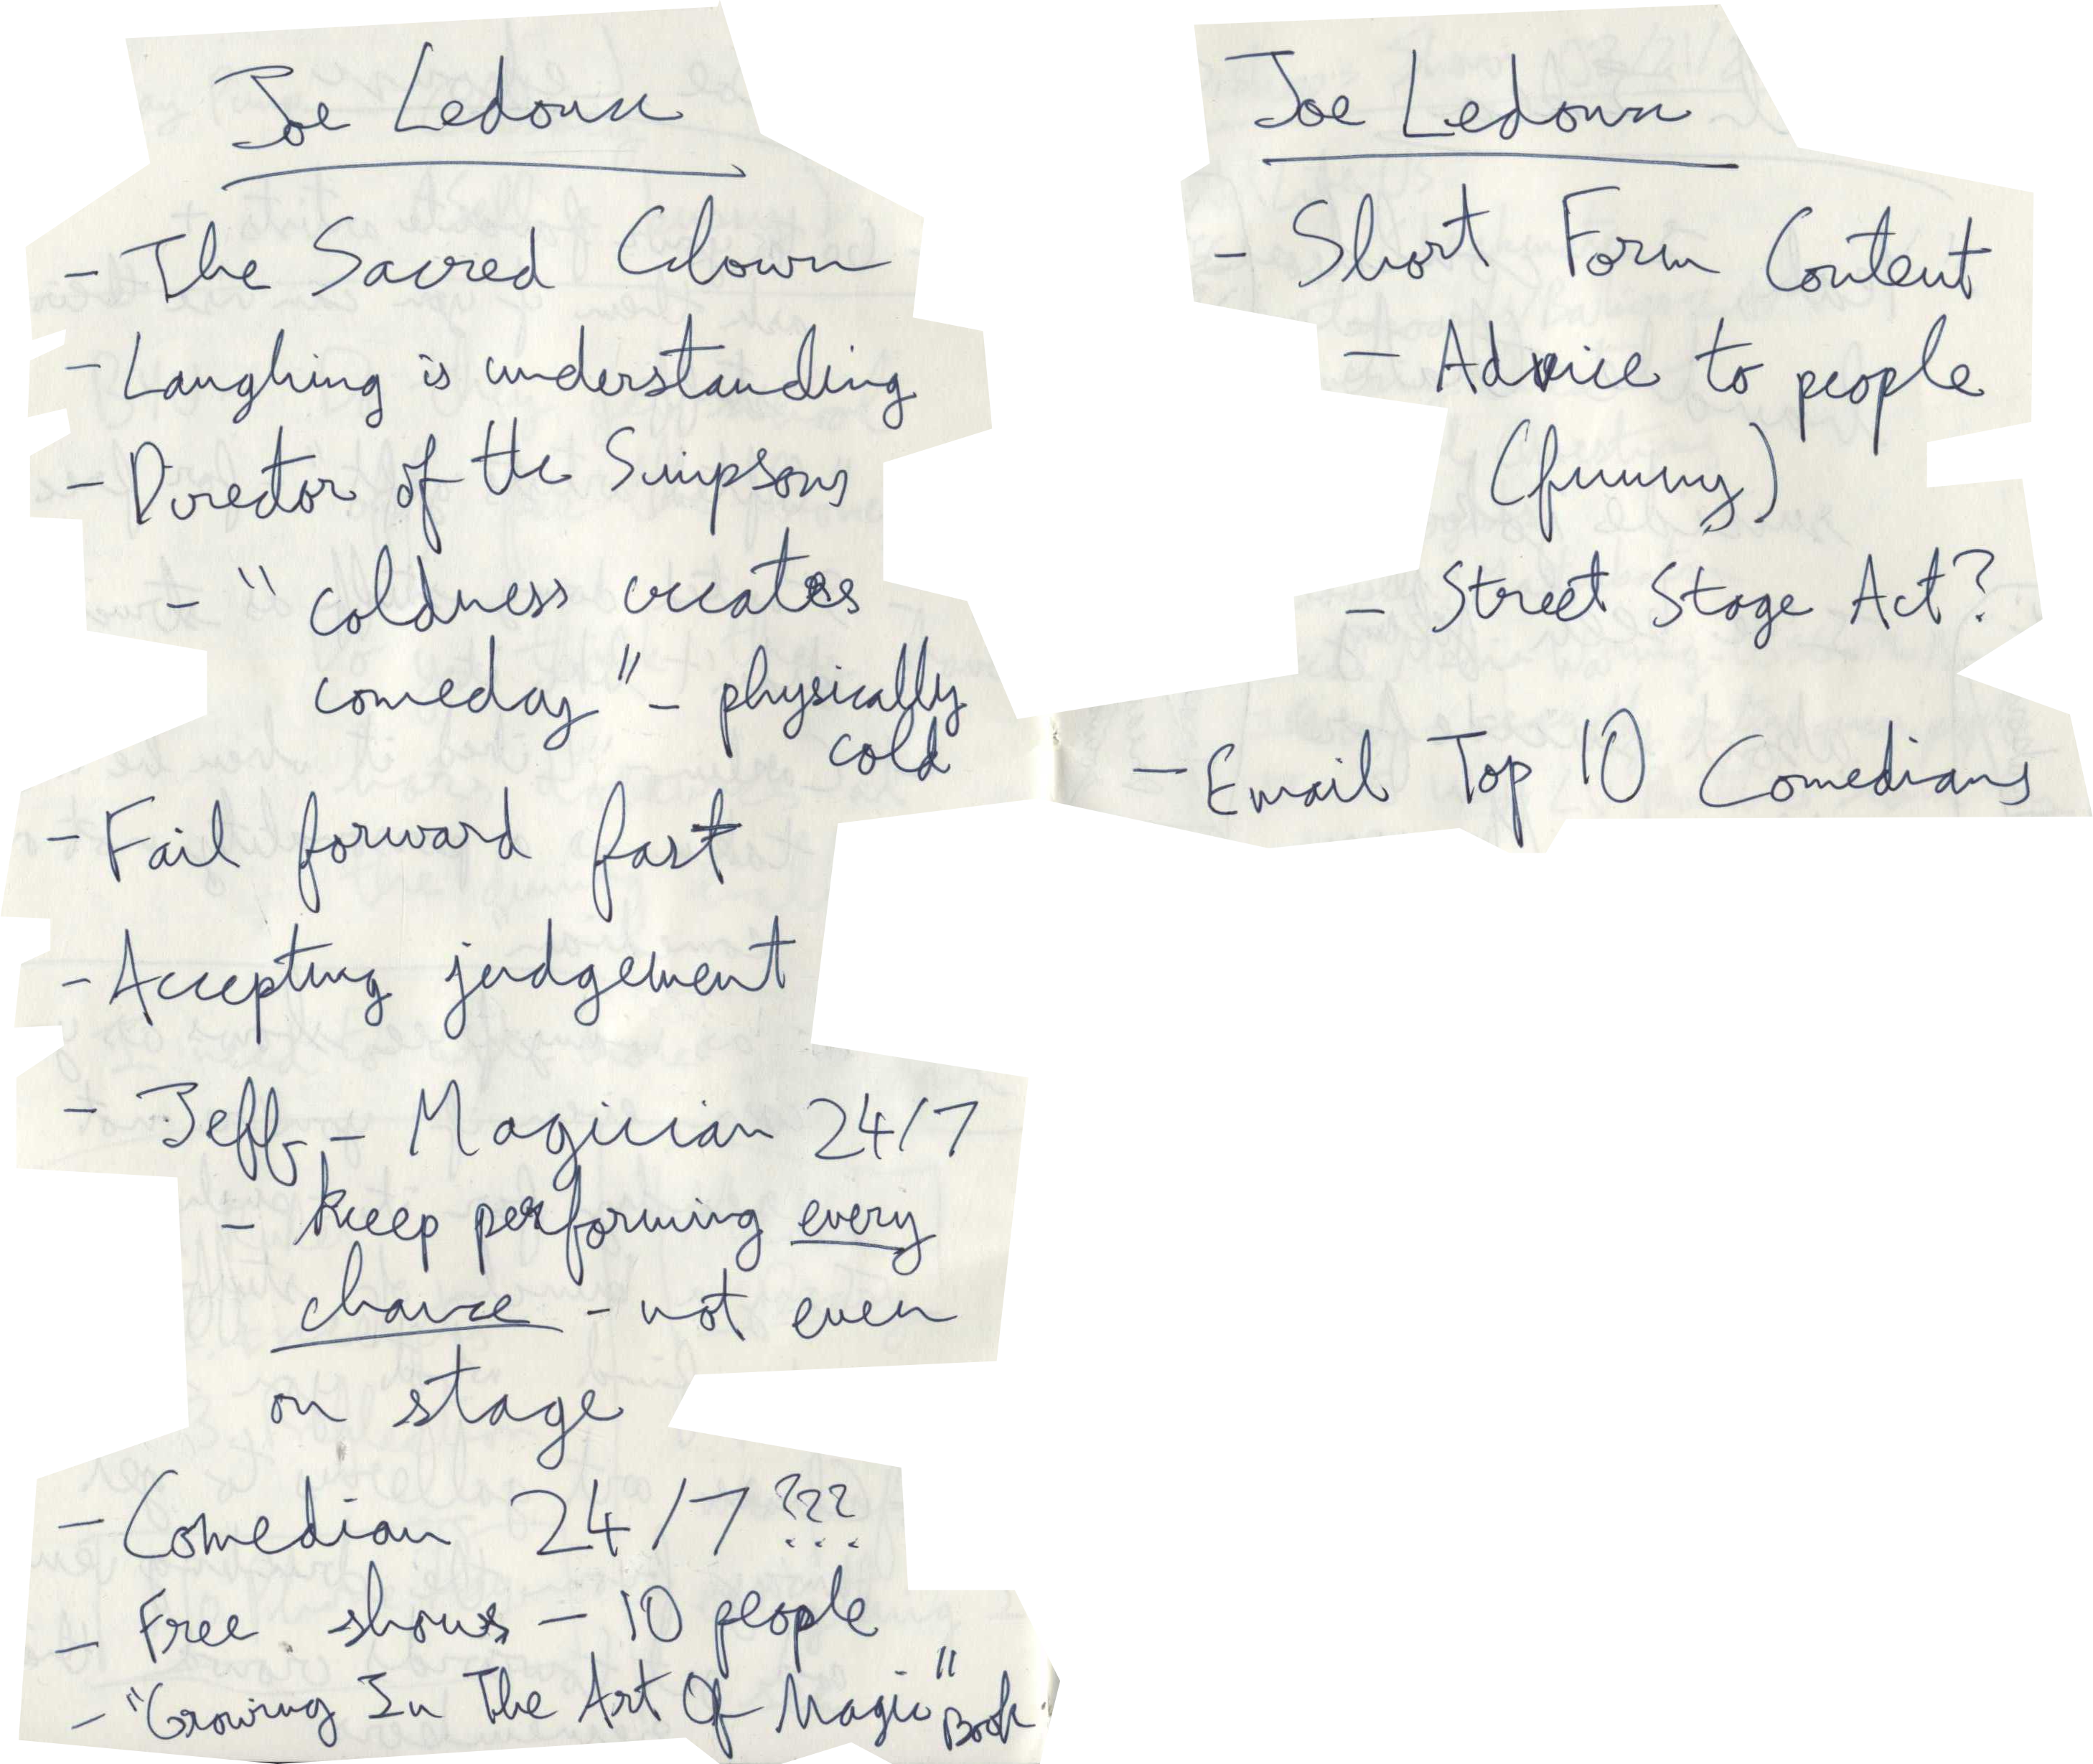 Joe Ledoux
- The Sacred Clown
- Laughing is understanding
- Director of the Simpsons
- "coldness creates
comeday" - physically
cold
- Fail forward fast
- Accepting judgement
- Jeff - Magician 24/7
- keep performing every
chance - not even
on stage
- Comedian 24/7???
- Free shows - 10 people
- "Growing In The Art Of Magic" Book
Joe Ledoux
- Short Form Content
- Advice to people
(funny)
- Street Stage Act?
- Email Top 10 Comedians